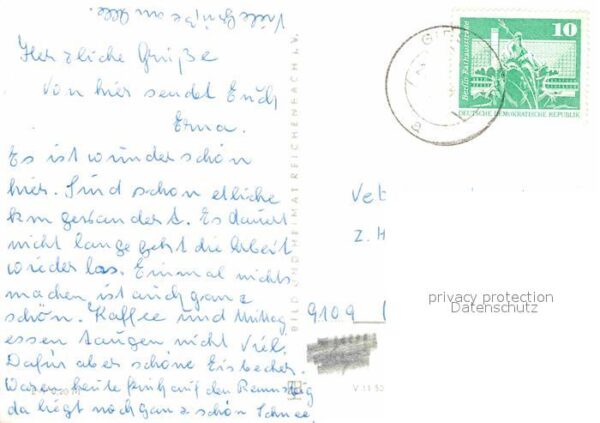 Viele Grüße an Alle.
Herzliche Grüße
von hier sendet Euch
Erna.
Es ist wunderschön
hier. Sind schon etliche
km gewandert. Es dauert
nicht lange geht die Arbeit
wieder los. Einmal nichts
machen, ist auch ganz
schön. Kaffee und Mittag
essen taugen nicht viel.
Dafür aber schöne Eisbecher.
Waren heute früh auf den Rennsteig
da liegt noch ganz schön Schnee.
BILD UND HEIMAT REICHENBACH I. V.
10
Berlin Rathausstraße
DEUTSCHE DEMOKRATISCHE REPUBLIK
Vet
z. H
9109
V 11 50
privacy protection
Datenschutz